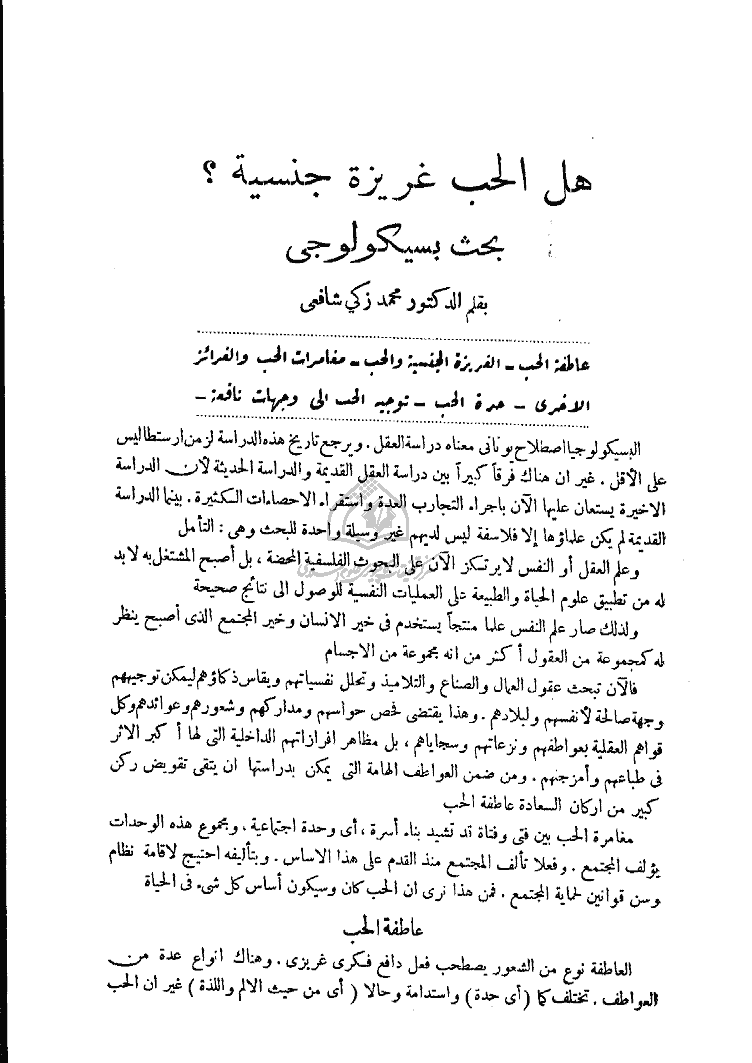 هل الحب غريزة جنسية ؟
بحث بسيكولوجى
بقلم الدكتور محمد زكي شافعى
عاطفة الحب - الغريزة الجنسية والحب - مغامرات الحب والغرائز
الاخرى - حدة الحب - توجيه الحب الى وجهات نافعة -
البسيكولوجيا اصطلاح يونانى معناه دراسة العقل . ويرجع تاريخ هذه الدراسة لزمن ارستطاليس
على الأقل . غير ان هناك فرقاً كبيراً بين دراسة العقل القديمة والدراسة الحديثة لأن الدراسة
الاخيرة يستعان عليها الآن باجراء التجارب العدة واستقراء الاحصاءات الكثيرة . بينما الدراسة
القديمة لم يكن علماؤها إلا فلاسفة ليس لديهم غير وسيلة واحدة للبحث وهى : التأمل
وعلم العقل أو النفس لا يرتكز الآن على البحوث الفلسفية المحضة ، بل أصبح المشتغل به لابد
له من تطبيق علوم الحياة والطبيعة على العمليات النفسية للوصول الى نتائج صحيحة
ولذلك صار علم النفس علما منتجاً يستخدم فى خير الانسان وخير المجتمع الذى أصبح ينظر
له كمجموعة من العقول أكثر من انه مجموعة من الاجسام
فالآن تبحث عقول العمال والصناع والتلاميذ وتحلل نفسياتهم ويقاس ذكاؤهم ليمكن توجيههم
وجهة صالحة لأنفسهم ولبلادهم . وهذا يقتضى فحص حواسهم ومداركهم وشعورهم وعوائدهم وكل
قواهم العقلية بعواطفهم ونزعاتهم وسجاياهم ، بل مظاهر افرازاتهم الداخلية التى لها أكبر الاثر
فى طباعهم وأمزجتهم . ومن ضمن العواطف الهامة التى يمكن بدراستها ان يتقى تقويض ركن
كبير من اركان السعادة عاطفة الحب
مغامرة الحب بين فتى وفتاة قد تشيد بناء أسرة ، أى وحدة اجتماعية . وبمجموع هذه الوحدات
يؤلف المجتمع . وفعلا تألف المجتمع منذ القدم على هذا الاساس . وبتأليفه احتيج لاقامة نظام
وسن قوانين لحماية المجتمع . فمن هذا نرى ان الحب كان وسيكون أساس كل شىء فى الحياة
عاطفة الحب
العاطفة نوع من الشعور يصطحب فعل دافع فكرى غريزى . وهناك انواع عدة من
العواطف . تختلف كما ( أى حدة ) واستدامة وحالا ( أى من حيث الالم واللذة ) غير ان الحب